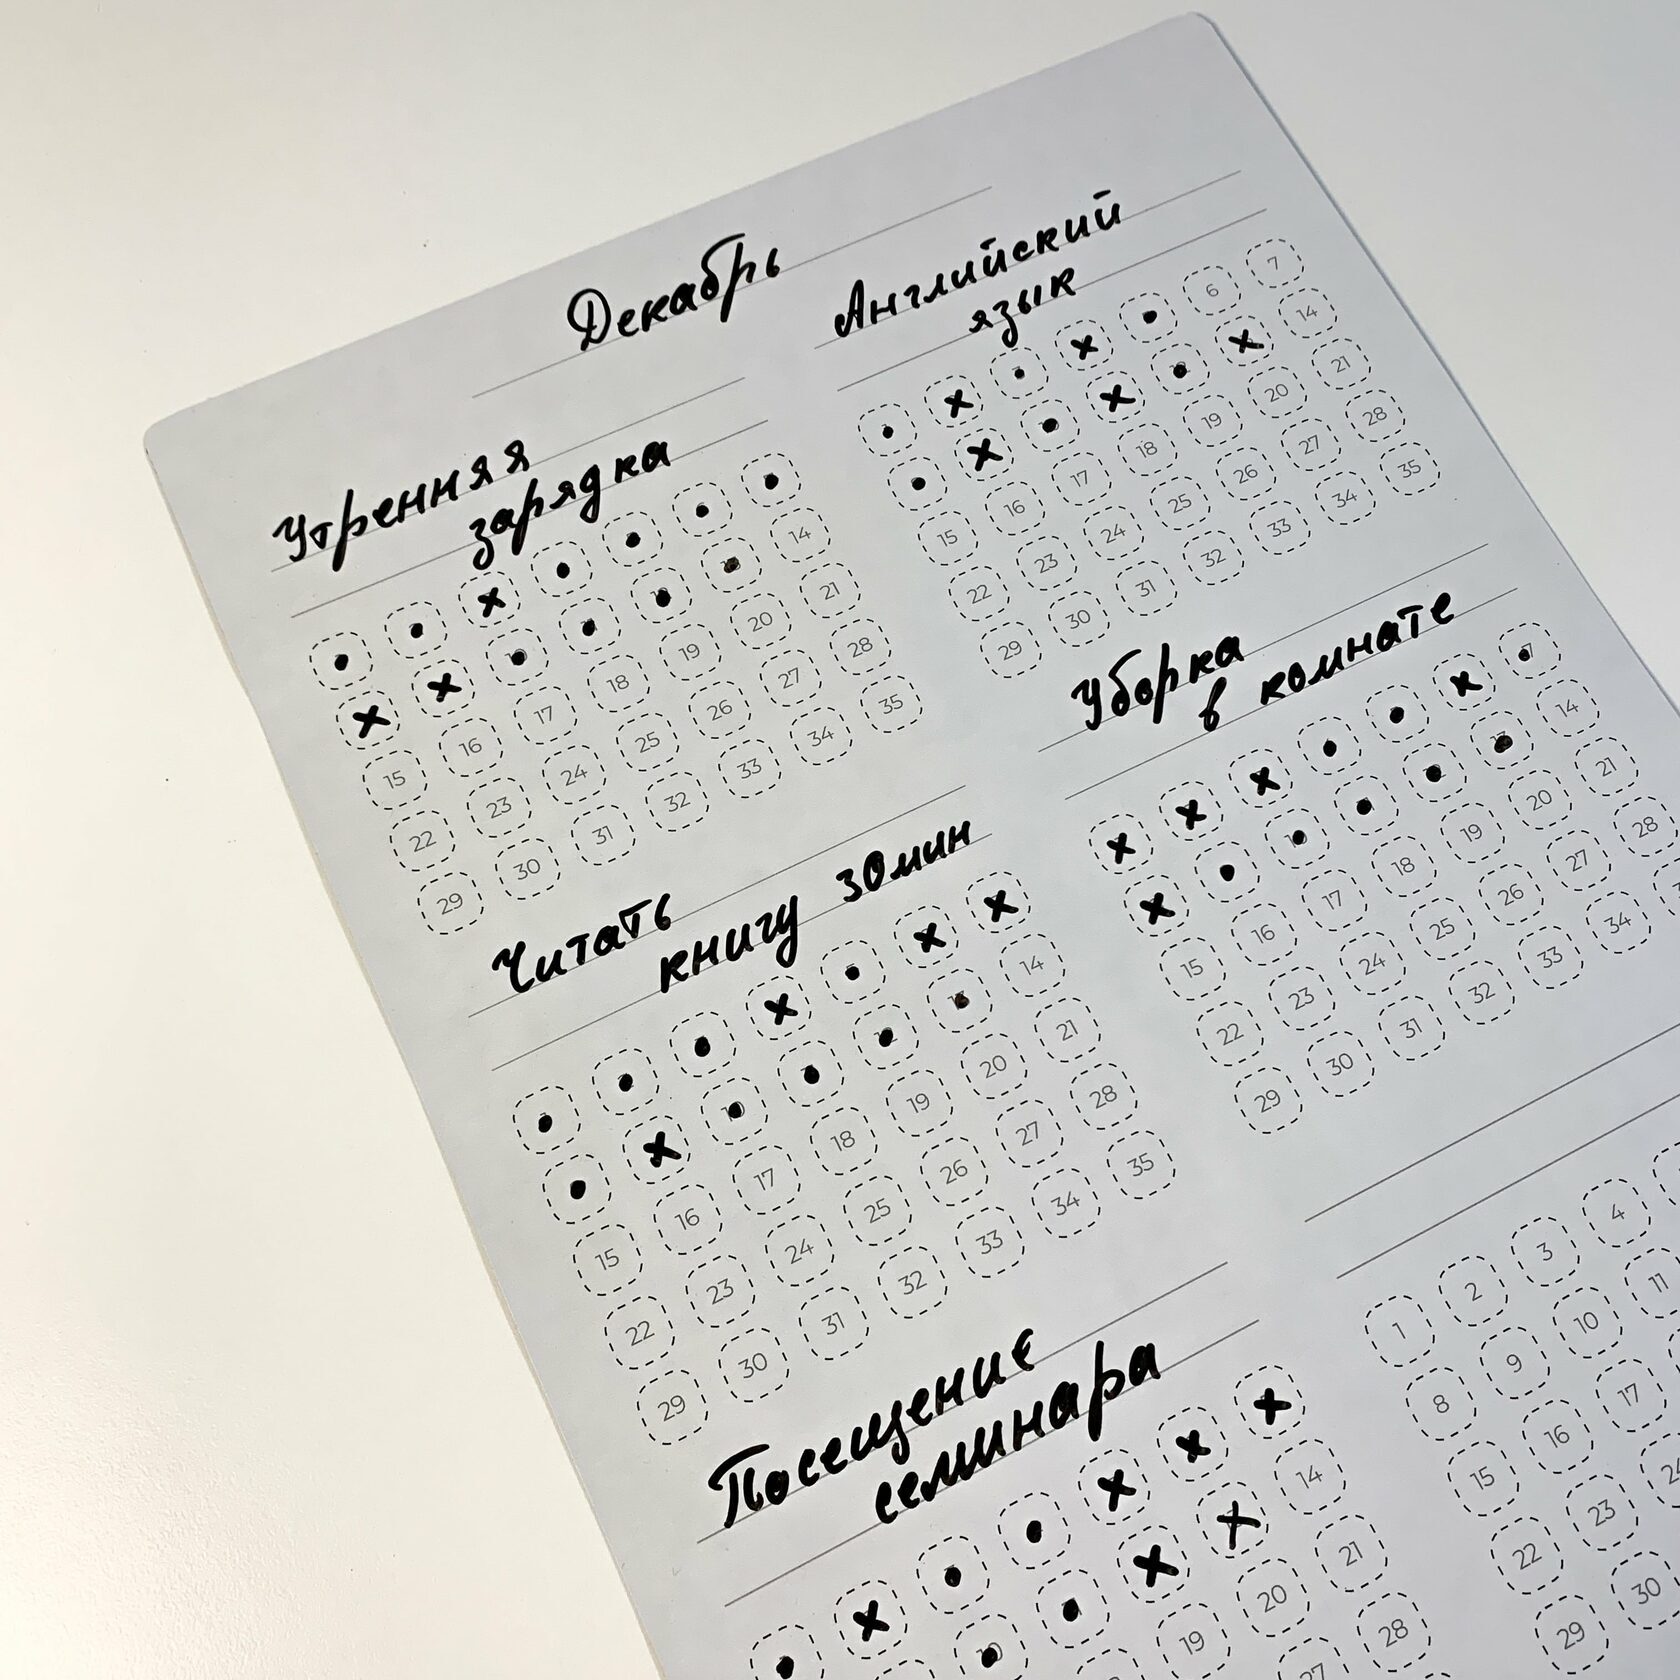 Декабрь
Утренняя
зарядка
14
15 16 17 18 19 20 21
22 23 24 25 26 27 28
29 30 31 32 33 34 35
Английский
язык
6 7
14
15 16 17 18 19 20 21
22 23 24 25 26 27 28
29 30 31 32 33 34 35
Читать
книгу 30мин
14
15 16 17 18 19 20 21
22 23 24 25 26 27 28
29 30 31 32 33 34 35
Уборка
в комнате
14
15 16 17 18 19 20 21
22 23 24 25 26 27 28
29 30 31 32 33 34
Посещение
семинара
14
19 20 21
27 28
1 2 3 4
8 9 10 11
15 16 17
22 23 24
29 30